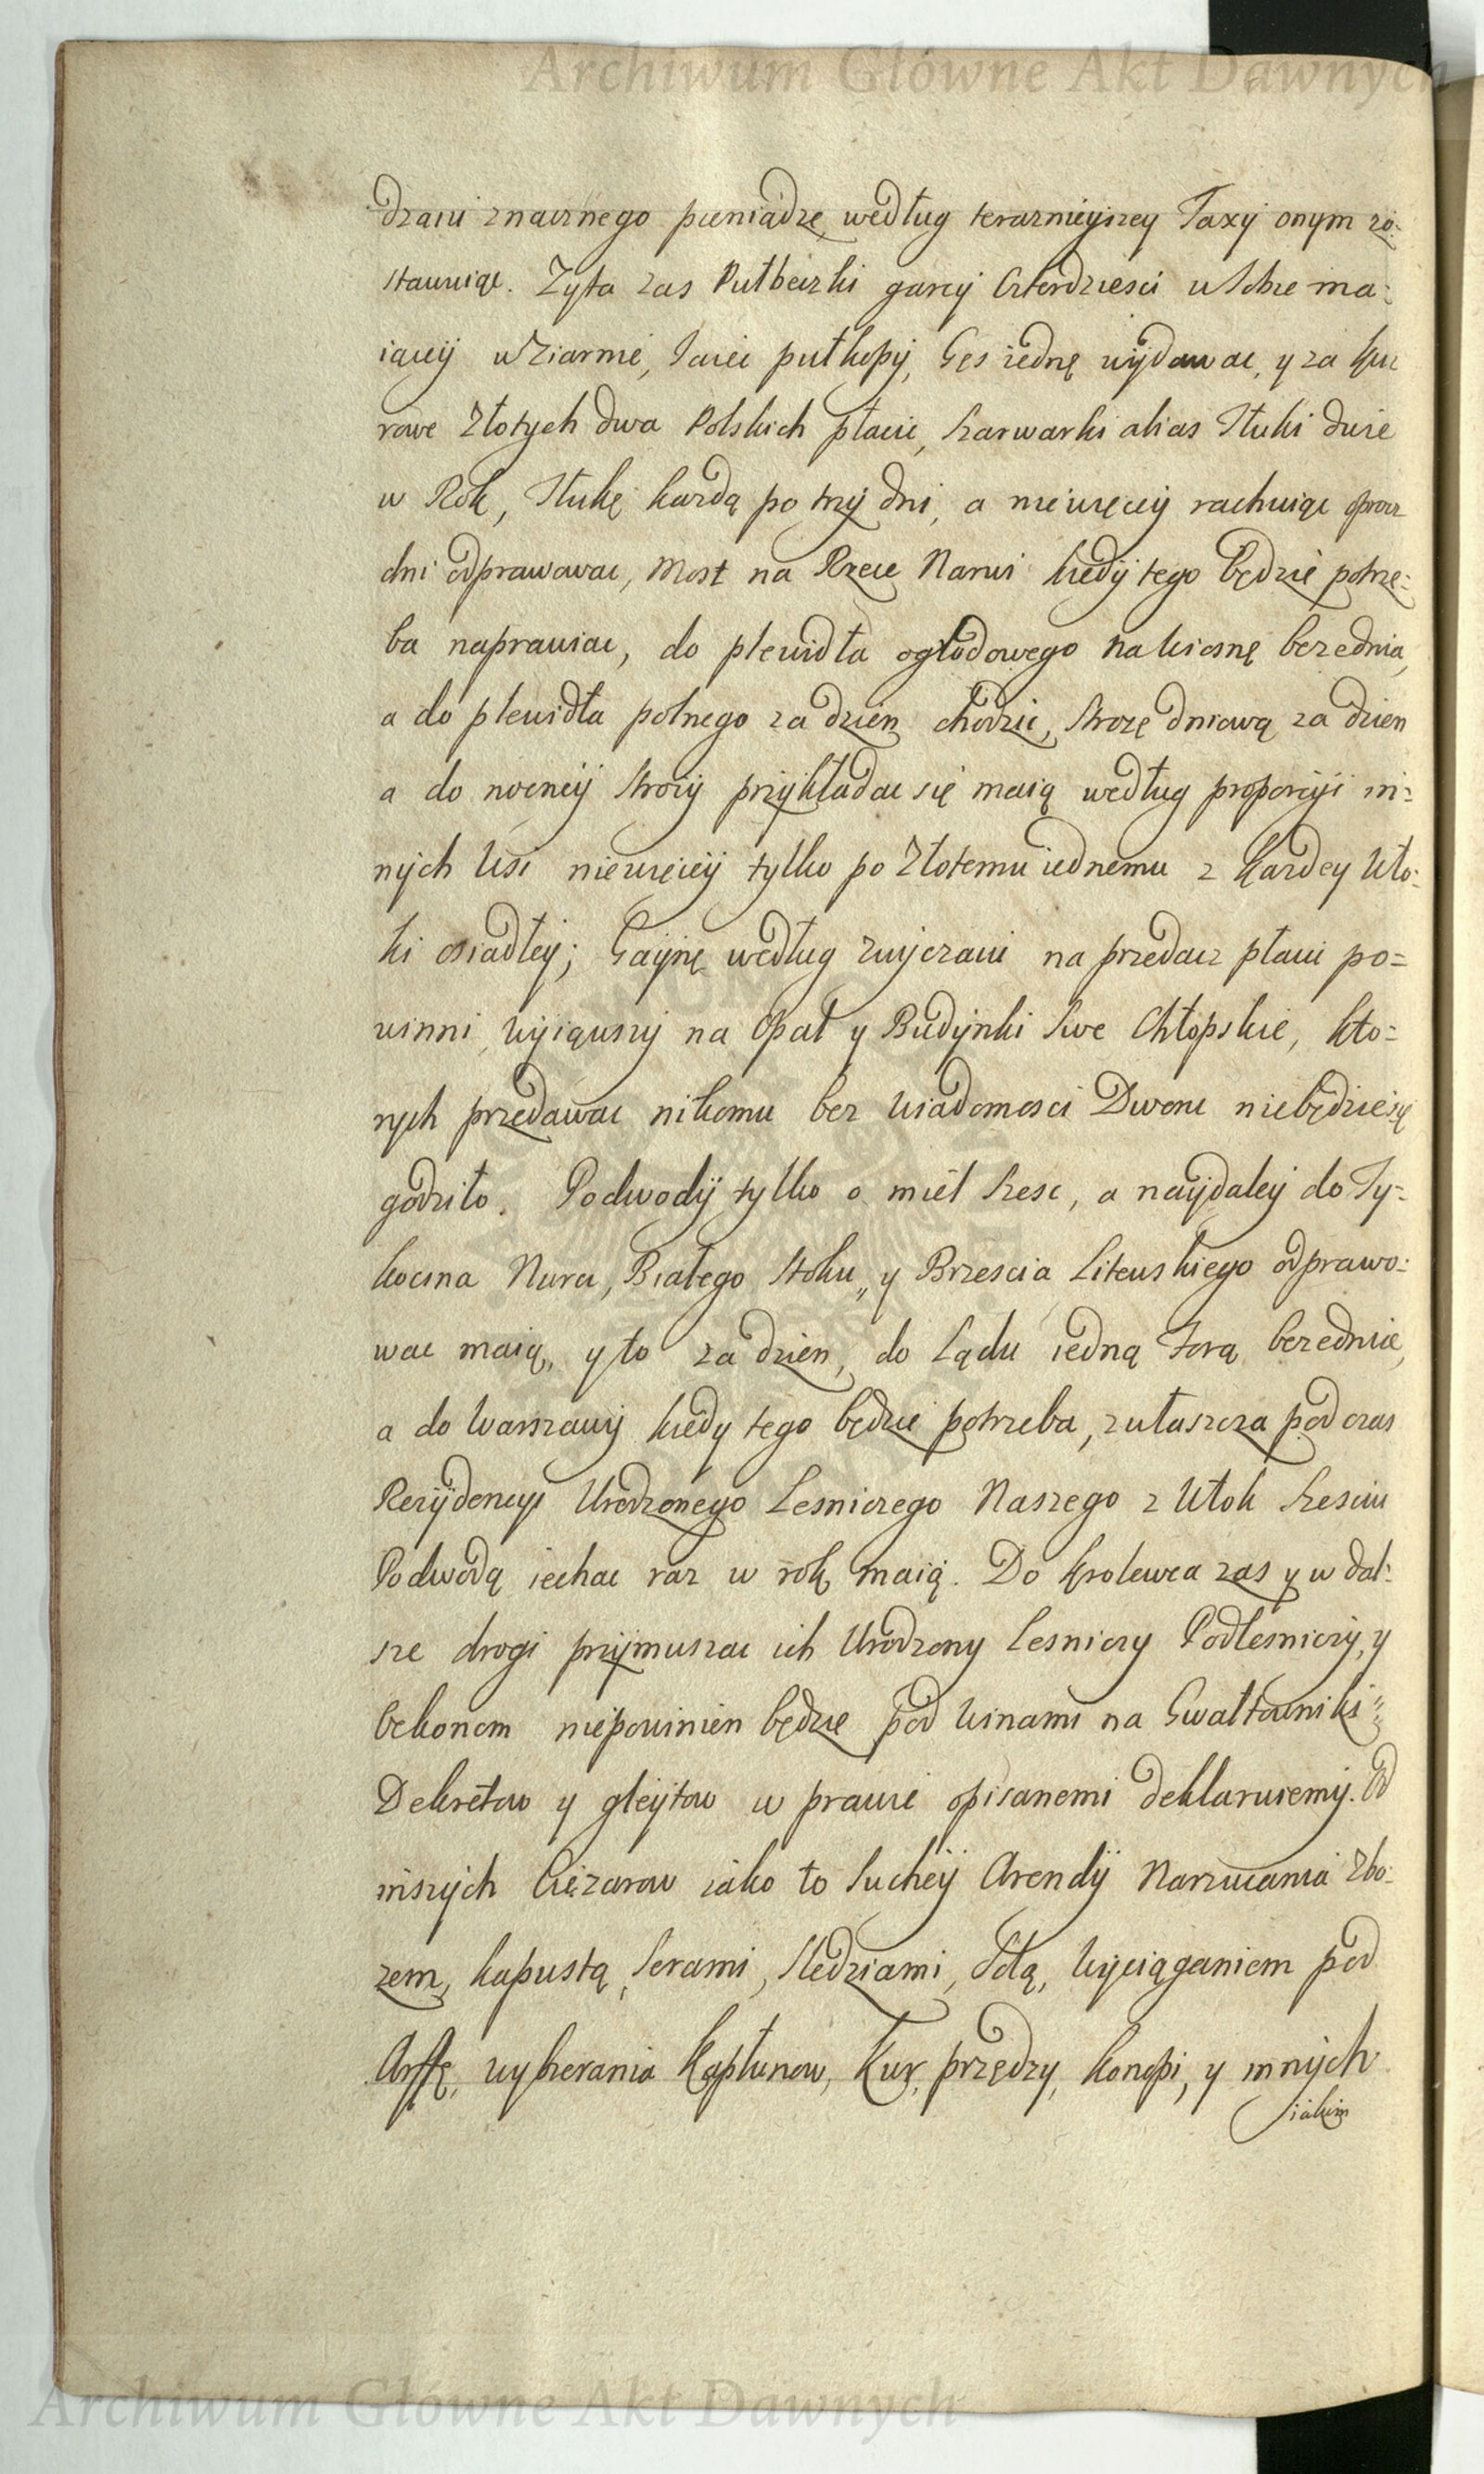 Archiwum Główne Akt Dawnych
dzaiu znacznego pieniądze, według teraznieyszey Taxy onym zo=
stawuiąc. Zyta zas Pułbeczki garcy Czterdziesci w Sobie ma=
iącey w Ziarnie, Jaiec pułkopy, Gęs iednę wydawac, y za ku
rowe Złotych dwa Polskich płacic, Szarwarki alias Tłuki dwie
w Rok, Tłukę kazdą po trzy dni, a niewięcey rachuiąc oprocz
dni odprawowac, Most na Rzece Narwi kiedy tego będzie potrze=
ba naprawiac, do plewidła ogrodowego na wiosnę bezednia,
a do plewidła polnego za dzien chodzic, Strozę dniową za dzien
a do nocney Strozy przykładac się maią według proporcyi in=
nych Wsi niewięcey tylko po Złotemu iednemu z Kazdey Wło=
ki osiadłey; Gaynę według zwyczaiu na przedacz płacic po=
winni, wyiąwszy na Opał y Budynki Swe Chłopskie, kto=
rych przedawac nikomu bez Wiadomosci Dworu niebędzie się
godziło. Podwody tylko o mil Szesc, a naydaley do Ty=
kocina Nura, Białego Stoku, y Brzescia Litewskiego odprawo=
wac maią, y to za dzien, do Lądu iedną Forą bezednie,
a do Warszawy kiedy tego będzie potrzeba, zwłaszcza pod czas
Rezydencyi Urodzonego Lesniczego Naszego z Włok Szesciu
Podwodą iechac raz w rok maią. Do Krolewca zas y w dal=
sze drogi przymuszac ich Urodzony Lesniczy Podlesniczy, y
Oekonom niepowinien będzie pod Winami na Gwałtowniki=
Dekretow y gleytow w prawie opisanemi deklaruiemy. Od
inszych Cięzarow iako to Suchey Arendy Narzucania Zbo=
zem, kapustą, Serami, Sledziami, Solą, Wyciąganiem pod
Arffę, wybierania Kapłunow, Kur, przędzy, konopi, y innych
iakim
Archiwum Główne Akt Dawnych